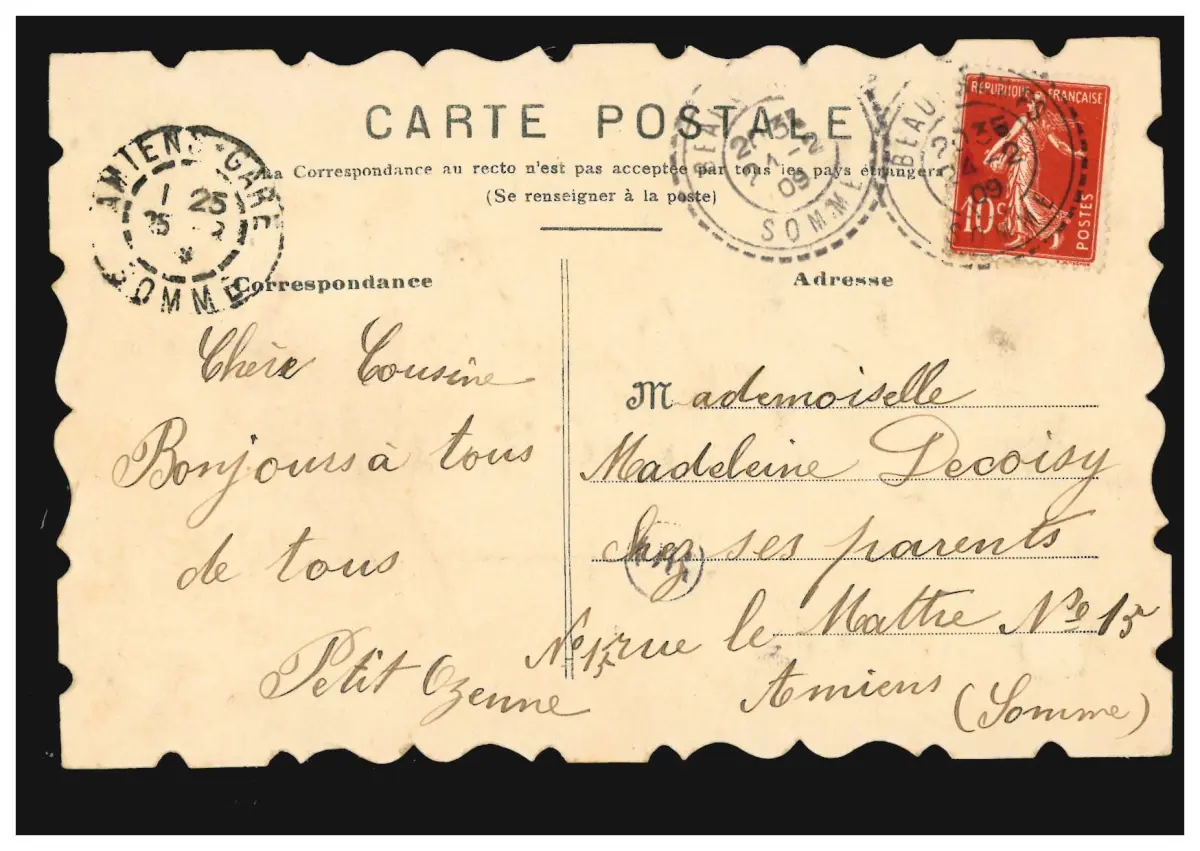 CARTE POSTALE
La Correspondance au recto n'est pas acceptée par tous les pays étrangers
(Se renseigner à la poste)
AMIENS-GARE
1 25
SOMME
BEAU
SOMME
09
BEAU
SOMME
09
RÉPUBLIQUE FRANÇAISE
10c
POSTES
Correspondance
Chère Cousine
Bonjours à tous
de tous
Petit Ozenne
Adresse
Mademoiselle
Madeleine Decoisy
Chez ses parents
No 15 rue le Mattre No 15
Amiens (Somme)